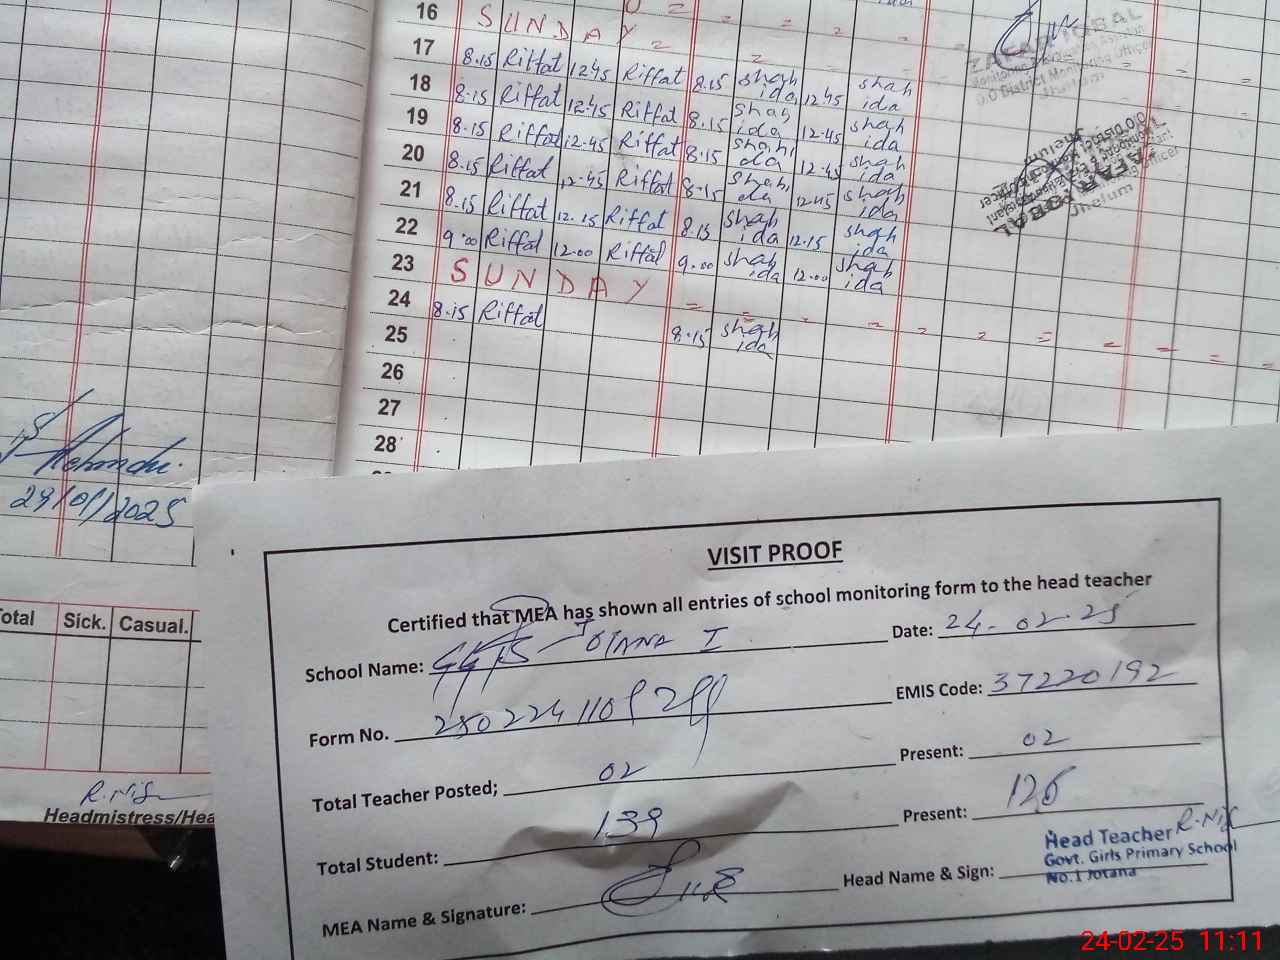 16 SUNDAY
17 8.15 Riffat 12.45 Riffat 8.15 shahida 12.45 shahida
18 8.15 Riffat 12.45 Riffat 8.15 shahida 12.45 shahida
19 8.15 Riffat 12.45 Riffat 8.15 shahida 12.45 shahida
20 8.15 Riffat 12.45 Riffat 8.15 shahida 12.45 shahida
21 8.15 Riffat 12.15 Riffat 8.15 shahida 12.15 shahida
22 9.00 Riffat 12.00 Riffat 9.00 shahida 12.00 shahida
23 SUNDAY
24 8.15 Riffat 8.15 shahida
25
26
27
28
ZAFAR IQBAL
District Monitoring Officer
Jhelum
Total Sick. Casual.
R.Nis
Headmistress/Hea
VISIT PROOF
Certified that MEA has shown all entries of school monitoring form to the head teacher
School Name: GGPS JOTANA I Date: 24-02-25
Form No. EMIS Code: 37220192
Total Teacher Posted; 02 Present: 02
Total Student: 139 Present: 126
MEA Name & Signature: Head Name & Sign:
Head Teacher R.Nis
Govt. Girls Primary School
No.1 Jotana
24-02-25 11:11